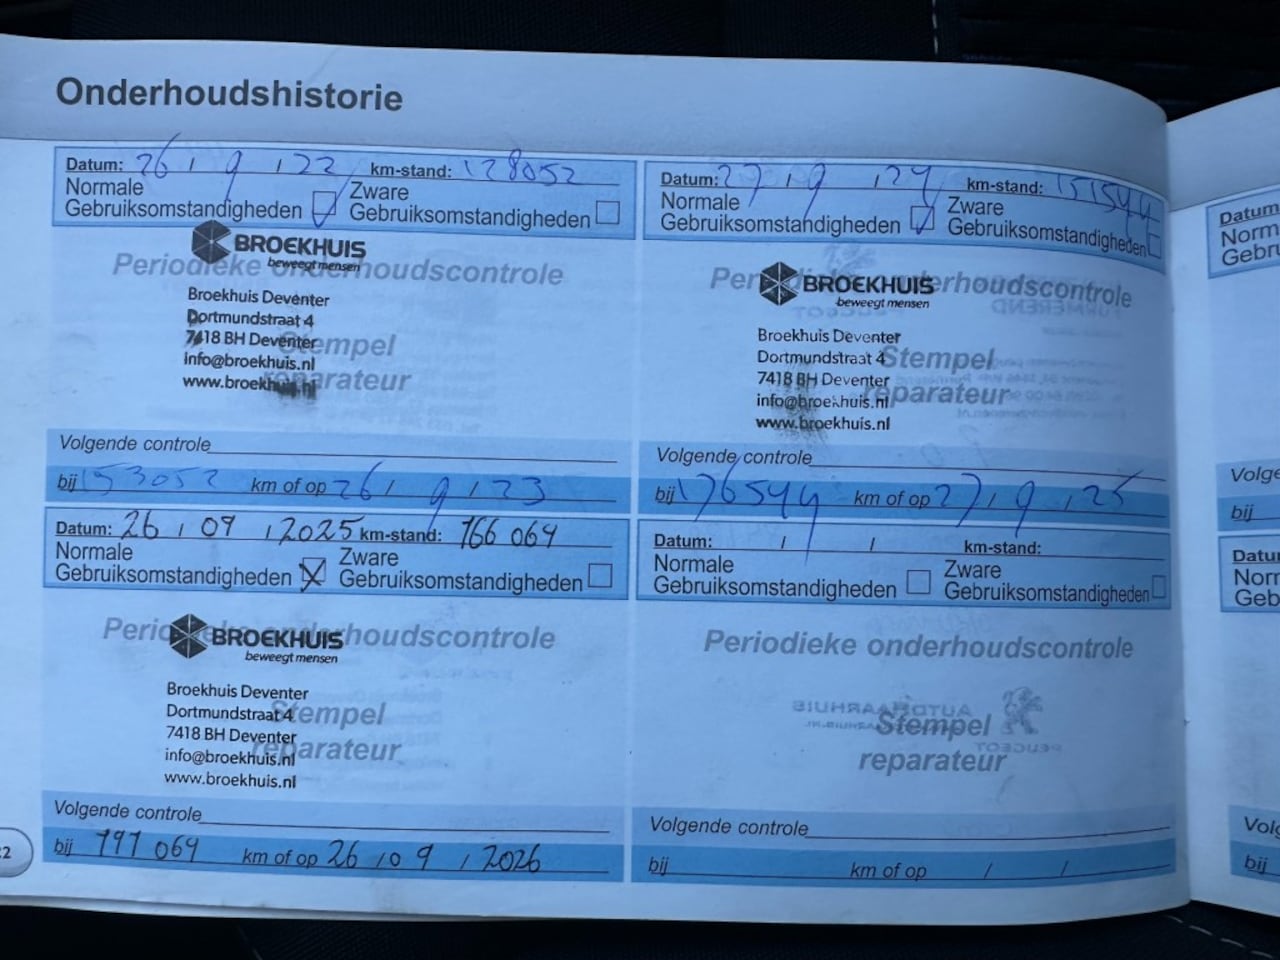 Onderhoudshistorie
Datum: 26 / 9 / 22 km-stand: 128052
Normale Gebruiksomstandigheden Zware Gebruiksomstandigheden
BROEKHUIS
beweegt mensen
Periodieke onderhoudscontrole
Broekhuis Deventer
Dortmundstraat 4
7418 BH Deventer
info@broekhuis.nl
www.broekhuis.nl
Stempel
reparateur
Volgende controle
bij 153052 km of op 26 / 9 / 23
Datum: 27 / 9 / 24 km-stand: 151544
Normale Gebruiksomstandigheden Zware Gebruiksomstandigheden
BROEKHUIS
beweegt mensen
Periodieke onderhoudscontrole
Broekhuis Deventer
Dortmundstraat 4
7418 BH Deventer
info@broekhuis.nl
www.broekhuis.nl
Stempel
reparateur
Volgende controle
bij 176544 km of op 27 / 9 / 25
Datum: 26 / 09 / 2025 km-stand: 166 069
Normale Gebruiksomstandigheden Zware Gebruiksomstandigheden
BROEKHUIS
beweegt mensen
Periodieke onderhoudscontrole
Broekhuis Deventer
Dortmundstraat 4
7418 BH Deventer
info@broekhuis.nl
www.broekhuis.nl
Stempel
reparateur
Volgende controle
bij 191 069 km of op 26 / 09 / 2026
Datum: / / km-stand:
Normale Gebruiksomstandigheden Zware Gebruiksomstandigheden
Periodieke onderhoudscontrole
Stempel
reparateur
Volgende controle
bij km of op / /
Datum
bij
bij